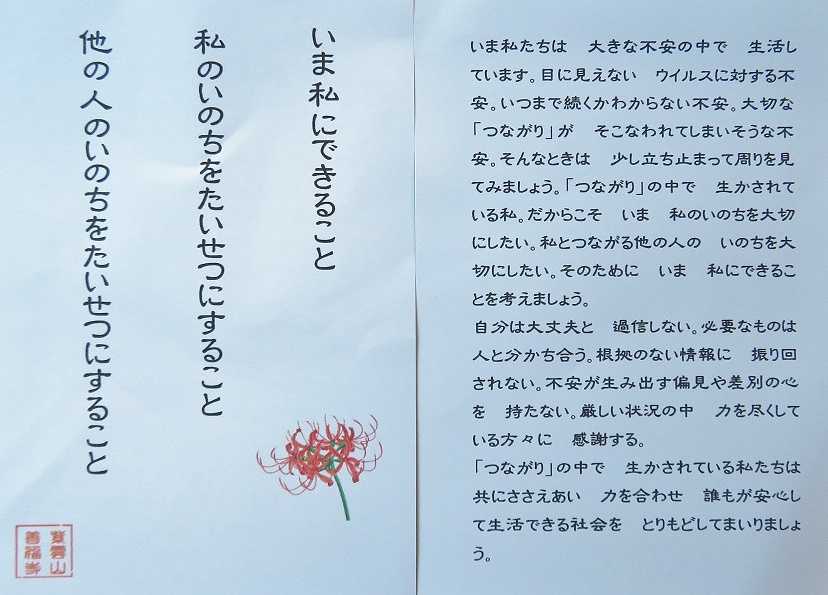 いま私にできること
私のいのちをたいせつにすること
他の人のいのちをたいせつにすること
いま私たちは　大きな不安の中で　生活し
ています。目に見えない　ウイルスに対する不
安。いつまで続くかわからない不安。大切な
「つながり」が　そこなわれてしまいそうな不
安。そんなときは　少し立ち止まって周りを見
てみましょう。「つながり」の中で　生かされて
いる私。だからこそ　いま　私のいのちを大切
にしたい。私とつながる他の人の　いのちを大
切にしたい。そのために　いま　私にできるこ
とを考えましょう。
自分は大丈夫と　過信しない。必要なものは
人と分かち合う。根拠のない情報に　振り回
されない。不安が生み出す偏見や差別の心
を　持たない。厳しい状況の中　力を尽くして
いる方々に　感謝する。
「つながり」の中で　生かされている私たちは
共にささえあい　力を合わせ　誰もが安心し
て生活できる社会を　とりもどしてまいりましょ
う。
善福寺